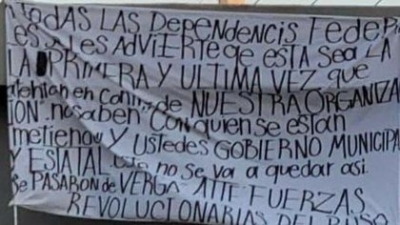 A TODAS LAS DEPENDENCIS FEDER
ES SE LES ADVIERTE qe ESTA SEA LA
LA PRIMERA Y ULTIMA VEZ que
atentan en Contra de NUESTRA ORGANIZA
ION". no saben Con quien se estan
metieno Y USTEDES GOBIERNO MUNICIPA
Y ESTATAL este no se va a quedar asi.
Se PASARON de VERGA ATTE FUERZAS
REVOLUCIONARIAS DEL